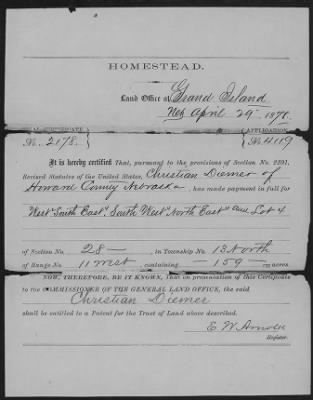 HOMESTEAD.
Land Office at Grand Island
Neb April 29th 187
FINAL CERTIFICATE APPLICATION
No. 2178. No. 4119
It is hereby certified That, pursuant to the provisions of Section No. 2291,
Revised Statutes of the United States, Christian Diemer of
Howard County Nebraska, has made payment in full for
West South East South West North East and Lot 4
of Section No. 28 in Township No. 13 North
of Range No. 11 West containing 159 acres
NOW, THEREFORE, BE IT KNOWN, That on presentation of this Certificate
to the COMMISSIONER OF THE GENERAL LAND OFFICE, the said
Christian Diemer
shall be entitled to a Patent for the Tract of Land above described.
E. W. Arnold
Register.